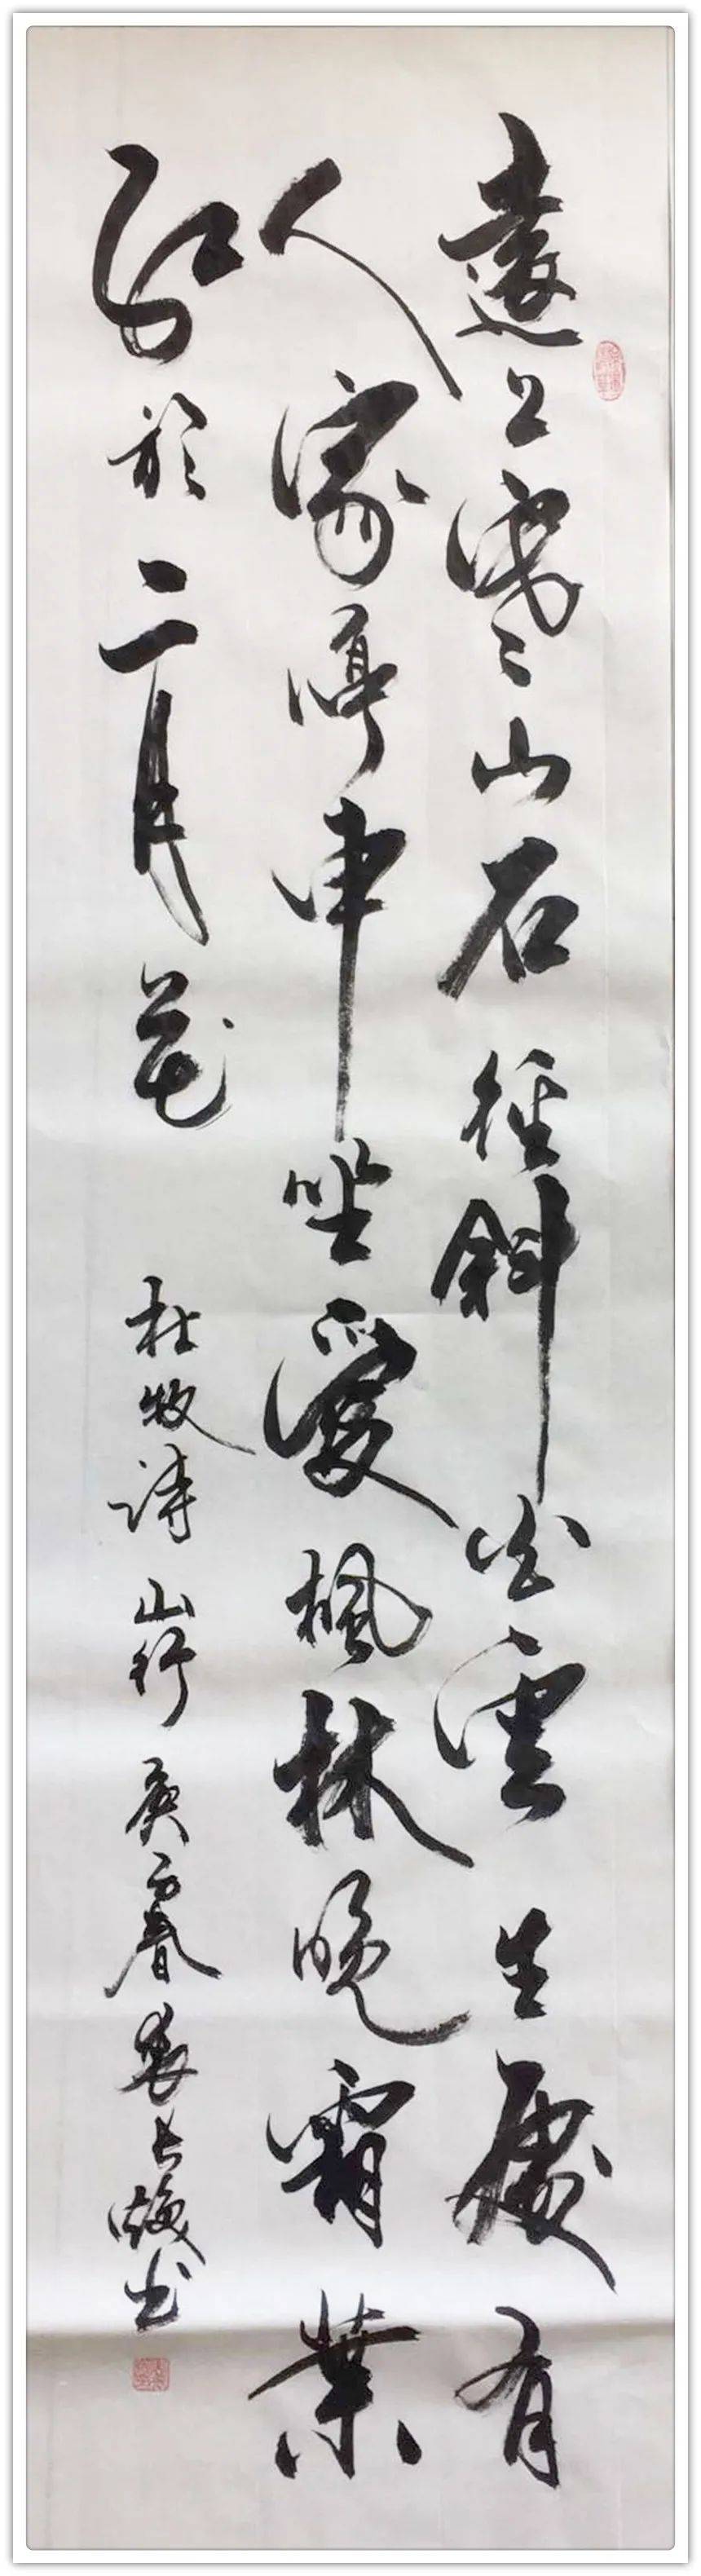 遠上寒山石徑斜白雲生處有
人家停車坐愛楓林晚霜葉
紅於二月花
杜牧詩山行庚子春袁長
書